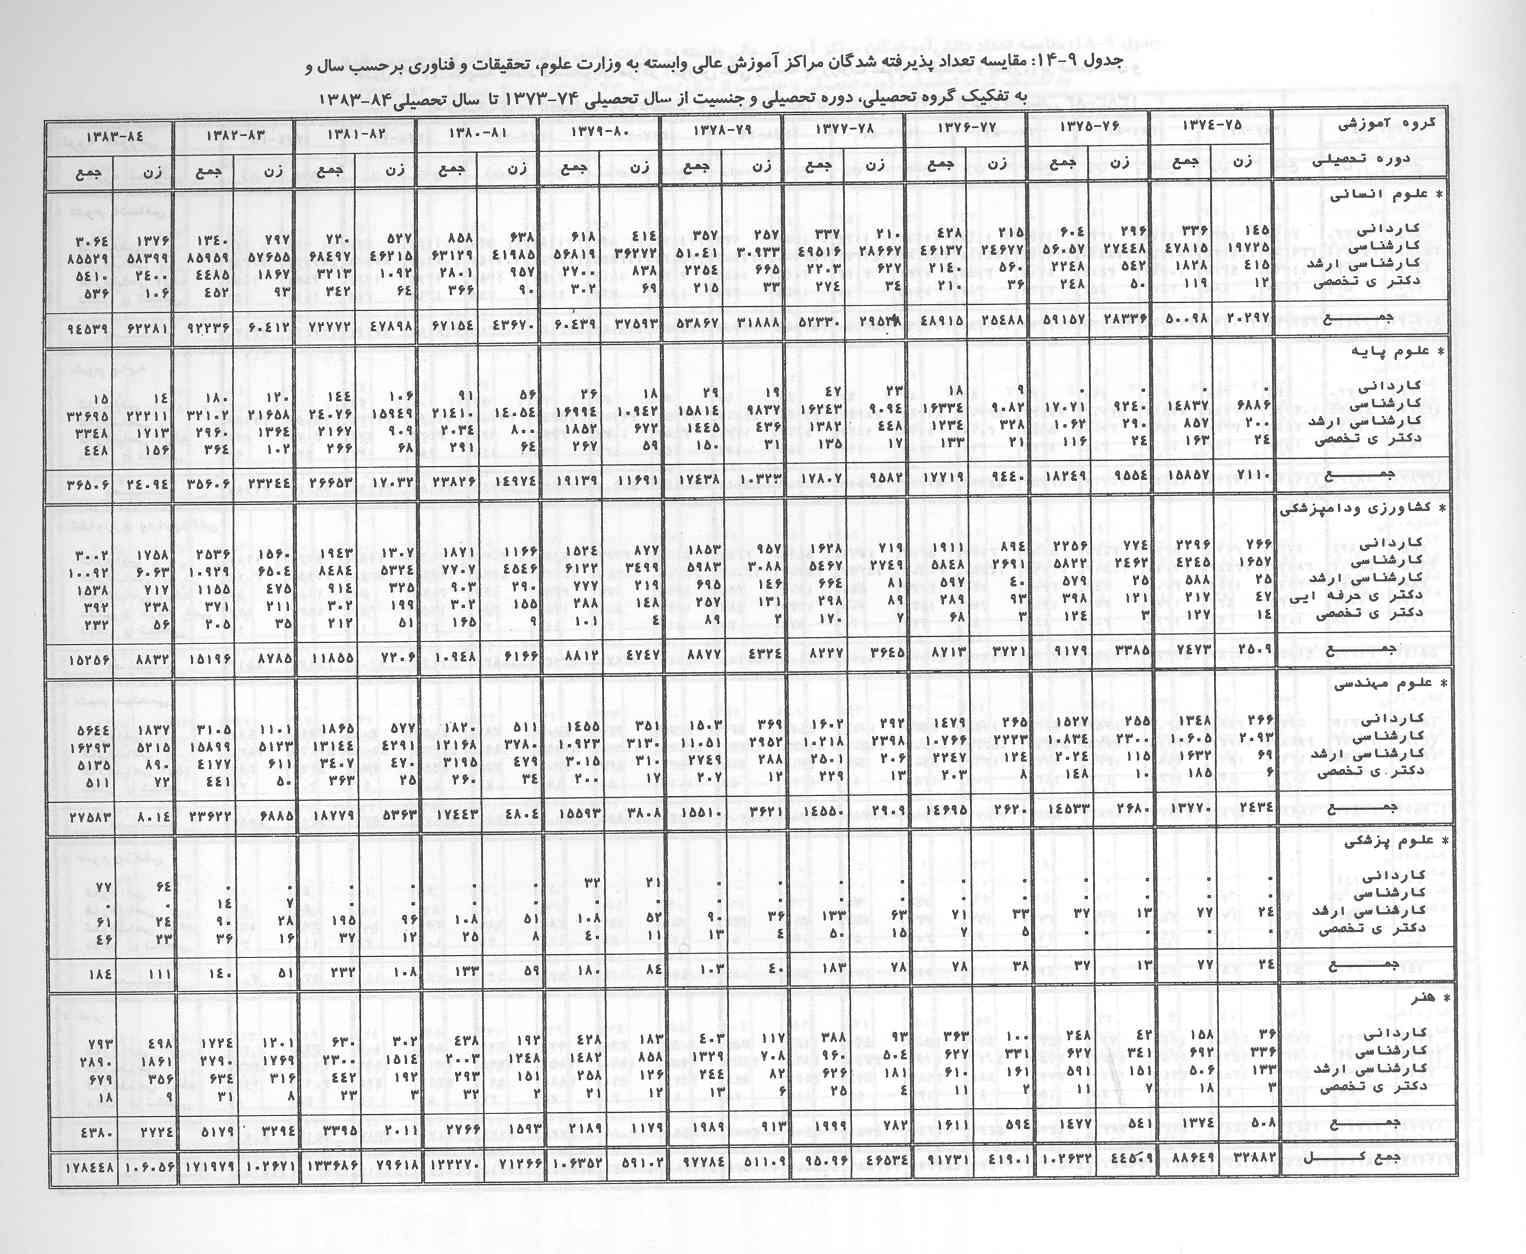 جدول ۹-۱۴: مقایسه تعداد پذیرفته شدگان مراکز آموزش عالی وابسته به وزارت علوم، تحقیقات و فناوری برحسب سال و
به تفکیک گروه تحصیلی، دوره تحصیلی و جنسیت از سال تحصیلی ۷۴-۱۳۷۳ تا سال تحصیلی۸۴-۱۳۸۳
گروه آموزشی ۱۳۷۴-۷۵ ۱۳۷۵-۷۶ ۱۳۷۶-۷۷ ۱۳۷۷-۷۸ ۱۳۷۸-۷۹ ۱۳۷۹-۸۰ ۱۳۸۰-۸۱ ۱۳۸۱-۸۲ ۱۳۸۲-۸۳ ۱۳۸۳-۸۴
دوره تحصیلی زن جمع زن جمع زن جمع زن جمع زن جمع زن جمع زن جمع زن جمع زن جمع زن جمع
* علوم انسانی
کاردانی ۱۴۵ ۳۳۶ ۲۹۶ ۶۰۴ ۲۱۵ ۴۲۸ ۲۱۰ ۳۳۷ ۲۵۷ ۳۵۷ ۴۱۴ ۶۱۸ ۶۳۸ ۸۵۸ ۵۲۷ ۷۲۰ ۷۹۷ ۱۳۴۰ ۱۳۷۶ ۳۰۶۴
کارشناسی ۱۹۷۲۵ ۴۷۸۱۵ ۲۷۴۴۸ ۵۶۰۵۷ ۲۴۶۷۷ ۴۶۱۳۷ ۲۸۶۶۷ ۴۹۵۱۶ ۳۰۹۳۳ ۵۱۰۴۱ ۳۶۲۷۲ ۵۶۸۱۹ ۴۱۹۸۵ ۶۳۱۲۹ ۴۶۲۱۵ ۶۸۴۹۷ ۵۷۶۵۵ ۸۵۹۵۹ ۵۸۳۹۹ ۸۵۵۲۹
کارشناسی ارشد ۴۱۵ ۱۸۲۸ ۵۴۲ ۲۲۴۸ ۵۶۰ ۲۱۴۰ ۶۲۷ ۲۲۰۳ ۶۶۵ ۲۲۵۴ ۸۳۸ ۲۷۰۰ ۹۵۷ ۲۸۰۱ ۱۰۹۲ ۳۲۱۳ ۱۸۶۷ ۴۴۸۵ ۲۴۰۰ ۵۴۱۰
دکتر ی تخصصی ۱۲ ۱۱۹ ۵۰ ۲۴۸ ۳۶ ۲۱۰ ۳۴ ۲۷۴ ۳۳ ۲۱۵ ۶۹ ۳۰۲ ۹۰ ۳۶۶ ۶۴ ۳۴۲ ۹۳ ۴۵۲ ۱۰۶ ۵۳۶
جمـــــع ۲۰۲۹۷ ۵۰۰۹۸ ۲۸۳۳۶ ۵۹۱۵۷ ۲۵۴۸۸ ۴۸۹۱۵ ۲۹۵۳۸ ۵۲۳۳۰ ۳۱۸۸۸ ۵۳۸۶۷ ۳۷۵۹۳ ۶۰۴۳۹ ۴۳۶۷۰ ۶۷۱۵۴ ۴۷۸۹۸ ۷۲۷۷۲ ۶۰۴۱۲ ۹۲۲۳۶ ۶۲۲۸۱ ۹۴۵۳۹
* علوم پایه
کاردانی ۰ ۰ ۰ ۰ ۹ ۱۸ ۲۳ ۴۷ ۱۹ ۲۹ ۱۸ ۲۶ ۵۶ ۹۱ ۱۰۶ ۱۴۴ ۱۲۰ ۱۸۰ ۱۴ ۱۵
کارشناسی ۶۸۸۶ ۱۴۸۳۷ ۹۲۴۰ ۱۷۰۷۱ ۹۰۸۲ ۱۶۳۳۴ ۹۰۹۴ ۱۶۲۴۳ ۹۸۳۷ ۱۵۸۱۴ ۱۰۹۴۲ ۱۶۹۹۴ ۱۴۰۵۴ ۲۱۴۱۰ ۱۵۹۴۹ ۲۴۰۷۶ ۲۱۶۵۸ ۳۲۱۰۲ ۲۲۲۱۱ ۳۲۶۹۵
کارشناسی ارشد ۲۰۰ ۸۵۷ ۲۹۰ ۱۰۶۲ ۳۲۸ ۱۲۳۴ ۴۴۸ ۱۳۸۲ ۴۳۶ ۱۴۴۵ ۶۷۲ ۱۸۵۲ ۸۰۰ ۲۰۳۴ ۹۰۹ ۲۱۶۷ ۱۳۶۴ ۲۹۶۰ ۱۷۱۳ ۳۳۴۸
دکتر ی تخصصی ۲۴ ۱۶۳ ۲۴ ۱۱۶ ۲۱ ۱۳۳ ۱۷ ۱۳۵ ۳۱ ۱۵۰ ۵۹ ۲۶۷ ۶۴ ۲۹۱ ۶۸ ۲۶۶ ۱۰۲ ۳۶۴ ۱۵۶ ۴۴۸
جمـــــع ۷۱۱۰ ۱۵۸۵۷ ۹۵۵۴ ۱۸۲۴۹ ۹۴۴۰ ۱۷۷۱۹ ۹۵۸۲ ۱۷۸۰۷ ۱۰۳۲۳ ۱۷۴۳۸ ۱۱۶۹۱ ۱۹۱۳۹ ۱۴۹۷۴ ۲۳۸۲۶ ۱۷۰۳۲ ۲۶۶۵۳ ۲۳۲۴۴ ۳۵۶۰۶ ۲۴۰۹۴ ۳۶۵۰۶
* کشاورزی ودامپزشکی
کاردانی ۷۶۶ ۲۲۹۶ ۷۷۴ ۲۲۵۶ ۸۹۴ ۱۹۱۱ ۷۱۹ ۱۶۲۸ ۹۵۷ ۱۸۵۳ ۸۷۷ ۱۵۲۴ ۱۱۶۶ ۱۸۷۱ ۱۳۰۷ ۱۹۴۳ ۱۵۶۰ ۲۵۳۶ ۱۷۵۸ ۳۰۰۲
کارشناسی ۱۶۵۷ ۴۲۴۵ ۲۴۶۲ ۵۸۲۲ ۲۶۹۱ ۵۸۴۸ ۲۷۴۹ ۵۴۶۷ ۳۰۸۸ ۵۹۸۳ ۳۴۹۹ ۶۱۲۲ ۴۵۴۶ ۷۷۰۷ ۵۳۲۴ ۸۴۸۴ ۶۵۰۴ ۱۰۹۲۹ ۶۰۶۳ ۱۰۰۹۲
کارشناسی ارشد ۲۵ ۵۸۸ ۲۵ ۵۷۹ ۴۰ ۵۹۷ ۸۱ ۶۶۴ ۱۴۶ ۶۹۵ ۲۱۹ ۷۷۷ ۲۹۰ ۹۰۳ ۳۲۵ ۹۱۴ ۴۷۵ ۱۱۵۵ ۷۱۷ ۱۵۳۸
دکتر ی حرفه ایی ۴۷ ۲۱۷ ۱۲۱ ۳۹۸ ۹۳ ۲۸۹ ۸۹ ۲۹۸ ۱۳۱ ۲۵۷ ۱۴۸ ۲۸۸ ۱۵۵ ۳۰۲ ۱۹۹ ۳۰۲ ۲۱۱ ۳۷۱ ۲۳۸ ۳۹۲
دکتر ی تخصصی ۱۴ ۱۲۷ ۳ ۱۲۴ ۳ ۶۸ ۷ ۱۷۰ ۲ ۸۹ ۴ ۱۰۱ ۹ ۱۶۵ ۵۱ ۲۱۲ ۳۵ ۲۰۵ ۵۶ ۲۳۲
جمـــــع ۲۵۰۹ ۷۴۷۳ ۳۳۸۵ ۹۱۷۹ ۳۷۲۱ ۸۷۱۳ ۳۶۴۵ ۸۲۲۷ ۴۳۲۴ ۸۸۷۷ ۴۷۴۷ ۸۸۱۲ ۶۱۶۶ ۱۰۹۴۸ ۷۲۰۶ ۱۱۸۵۵ ۸۷۸۵ ۱۵۱۹۶ ۸۸۳۲ ۱۵۲۵۶
* علوم مهندسی
کاردانی ۲۶۶ ۱۳۴۸ ۲۵۵ ۱۵۲۷ ۲۶۵ ۱۴۷۹ ۲۹۲ ۱۶۰۲ ۳۶۹ ۱۵۰۳ ۳۵۱ ۱۴۵۵ ۵۱۱ ۱۸۲۰ ۵۷۷ ۱۸۶۵ ۱۱۰۱ ۳۱۰۵ ۱۸۳۷ ۵۶۴۴
کارشناسی ۲۰۹۳ ۱۰۶۰۵ ۲۳۰۰ ۱۰۸۳۴ ۲۲۲۳ ۱۰۷۶۶ ۲۳۹۸ ۱۰۲۱۸ ۲۹۵۲ ۱۱۰۵۱ ۳۱۳۰ ۱۰۹۲۳ ۳۷۸۰ ۱۲۱۶۸ ۴۲۹۱ ۱۳۱۴۴ ۵۱۲۳ ۱۵۸۹۹ ۵۲۱۵ ۱۶۲۹۳
کارشناسی ارشد ۶۹ ۱۶۳۲ ۱۱۵ ۲۰۲۴ ۱۲۴ ۲۲۴۷ ۲۰۶ ۲۵۰۱ ۲۸۸ ۲۷۴۹ ۳۱۰ ۳۰۱۵ ۴۷۹ ۳۱۹۵ ۴۷۰ ۳۴۰۷ ۶۱۱ ۴۱۷۷ ۸۹۰ ۵۱۳۵
دکتر ی تخصصی ۶ ۱۸۵ ۱۰ ۱۴۸ ۸ ۲۰۳ ۱۳ ۲۲۹ ۱۲ ۲۰۷ ۱۷ ۲۰۰ ۳۴ ۲۶۰ ۲۵ ۳۶۳ ۵۰ ۴۴۱ ۷۲ ۵۱۱
جمـــــع ۲۴۳۴ ۱۳۷۷۰ ۲۶۸۰ ۱۴۵۳۳ ۲۶۲۰ ۱۴۶۹۵ ۲۹۰۹ ۱۴۵۵۰ ۳۶۲۱ ۱۵۵۱۰ ۳۸۰۸ ۱۵۵۹۳ ۴۸۰۴ ۱۷۴۴۳ ۵۳۶۳ ۱۸۷۷۹ ۶۸۸۵ ۲۳۶۲۲ ۸۰۱۴ ۲۷۵۸۳
* علوم پزشکی
کاردانی ۰ ۰ ۰ ۰ ۰ ۰ ۰ ۰ ۰ ۰ ۲۱ ۳۲ ۰ ۰ ۰ ۰ ۰ ۰ ۶۴ ۷۷
کارشناسی ۰ ۰ ۰ ۰ ۰ ۰ ۰ ۰ ۰ ۰ ۰ ۰ ۰ ۰ ۰ ۰ ۷ ۱۴ ۰ ۰
کارشناسی ارشد ۲۴ ۷۷ ۱۳ ۳۷ ۳۳ ۷۱ ۶۳ ۱۳۳ ۳۶ ۹۰ ۵۲ ۱۰۸ ۵۱ ۱۰۸ ۹۶ ۱۹۵ ۲۸ ۹۰ ۲۴ ۶۱
دکتر ی تخصصی ۰ ۰ ۰ ۰ ۵ ۷ ۱۵ ۵۰ ۴ ۱۳ ۱۱ ۴۰ ۸ ۲۵ ۱۲ ۳۷ ۱۶ ۳۶ ۲۳ ۴۶
جمـــــع ۲۴ ۷۷ ۱۳ ۳۷ ۳۸ ۷۸ ۷۸ ۱۸۳ ۴۰ ۱۰۳ ۸۴ ۱۸۰ ۵۹ ۱۳۳ ۱۰۸ ۲۳۲ ۵۱ ۱۴۰ ۱۱۱ ۱۸۴
* هنر
کاردانی ۳۶ ۱۵۸ ۴۲ ۲۴۸ ۱۰۰ ۳۶۳ ۹۳ ۳۸۸ ۱۱۷ ۴۰۳ ۱۸۳ ۴۲۸ ۱۹۲ ۴۳۸ ۳۰۲ ۶۳۰ ۱۲۰۱ ۱۷۲۴ ۴۹۸ ۷۹۳
کارشناسی ۳۳۶ ۶۹۲ ۳۴۱ ۶۲۷ ۳۳۱ ۶۲۷ ۵۰۴ ۹۶۰ ۷۰۸ ۱۳۲۹ ۸۵۸ ۱۴۸۲ ۱۲۴۸ ۲۰۰۳ ۱۵۱۴ ۲۳۰۰ ۱۷۶۹ ۲۷۹۰ ۱۸۶۱ ۲۸۹۰
کارشناسی ارشد ۱۳۳ ۵۰۶ ۱۵۱ ۵۹۱ ۱۶۱ ۶۱۰ ۱۸۱ ۶۲۶ ۸۲ ۲۴۴ ۱۲۶ ۲۵۸ ۱۵۱ ۲۹۳ ۱۹۲ ۴۴۲ ۳۱۶ ۶۳۴ ۳۵۶ ۶۷۹
دکتر ی تخصصی ۳ ۱۸ ۷ ۱۱ ۲ ۱۱ ۴ ۲۵ ۶ ۱۳ ۱۲ ۲۱ ۲ ۳۲ ۳ ۲۳ ۸ ۳۱ ۹ ۱۸
جمـــــع ۵۰۸ ۱۳۷۴ ۵۴۱ ۱۴۷۷ ۵۹۴ ۱۶۱۱ ۷۸۲ ۱۹۹۹ ۹۱۳ ۱۹۸۹ ۱۱۷۹ ۲۱۸۹ ۱۵۹۳ ۲۷۶۶ ۲۰۱۱ ۳۳۹۵ ۳۲۹۴ ۵۱۷۹ ۲۷۲۴ ۴۳۸۰
جمع کـــــل ۳۲۸۸۲ ۸۸۶۴۹ ۴۴۵۰۹ ۱۰۲۶۳۲ ۴۱۹۰۱ ۹۱۷۳۱ ۴۶۵۳۴ ۹۵۰۹۶ ۵۱۱۰۹ ۹۷۷۸۴ ۵۹۱۰۲ ۱۰۶۳۵۲ ۷۱۲۶۶ ۱۲۲۲۷۰ ۷۹۶۱۸ ۱۳۳۶۸۶ ۱۰۲۶۷۱ ۱۷۱۹۷۹ ۱۰۶۰۵۶ ۱۷۸۴۴۸